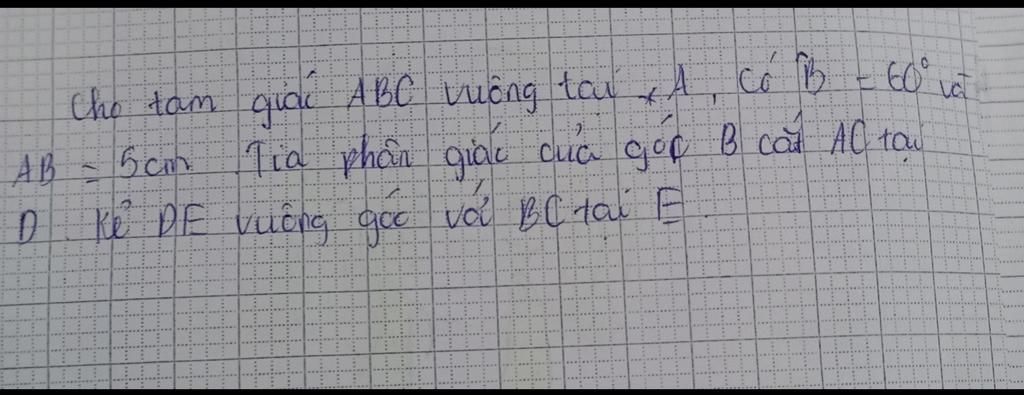 Cho tam giác ABC vuông tại A, Có B̂ = 60° và
AB = 5cm. Tia phân giác của góc B cắt AC tại
D. Kẻ DE vuông góc với BC tại E.